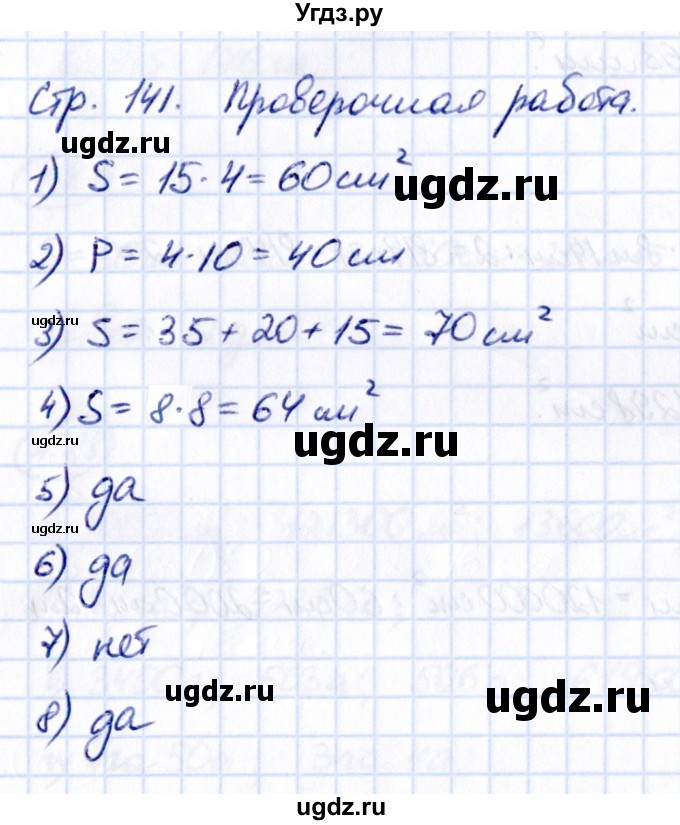 Угдз.ру
Стр. 141. Проверочная работа.
ugdz.ru
1) S = 15·4 = 60 см²
ugdz.ru
2) P = 4·10 = 40 см
ugdz.ru
3) S = 35 + 20 + 15 = 70 см²
4) S = 8·8 = 64 см²
ugdz.ru
ugdz.ru
5) да
ugdz.ru
6) да
7) нет
ugdz.ru
ugdz.ru
8) да
ugdz.ru